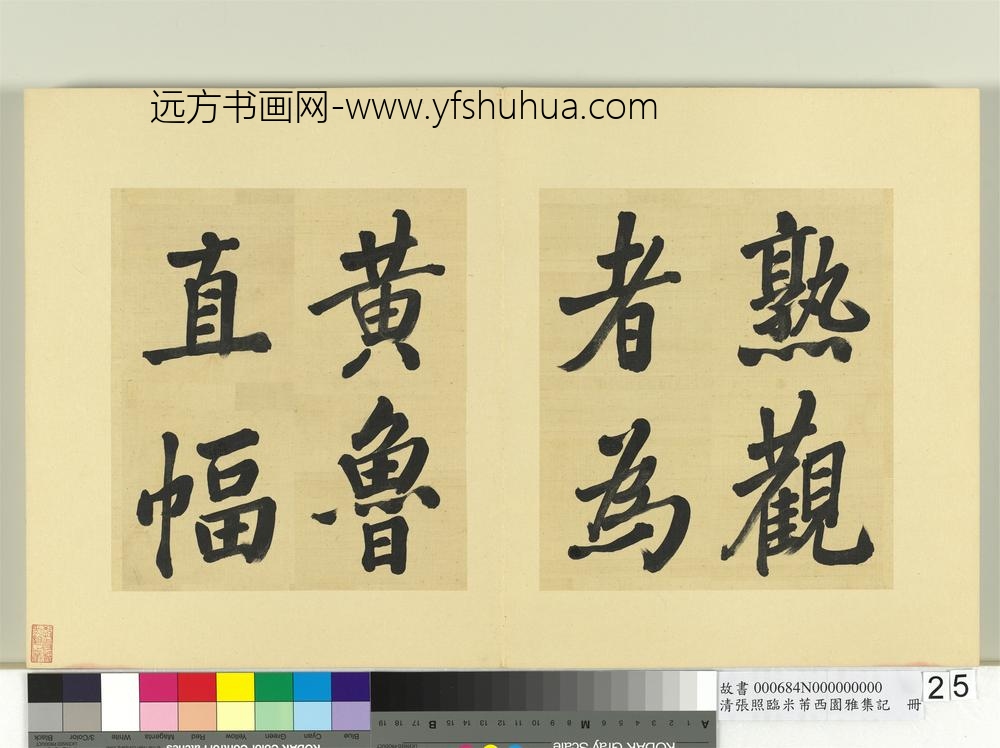 远方书画网-www.yfshuhua.com
熟觀
者為
黃魯
直幅
故書 000684N000000000
清張照臨米芾西園雅集記 冊
25
Black
3/Color
White
Magenta
Red
Yellow
Green
Cyan
Blue
A 1 2 3 4 5 6 M 8 9 10 11 12 13 14 15 B 17 18 19
KODAK Gray Scale